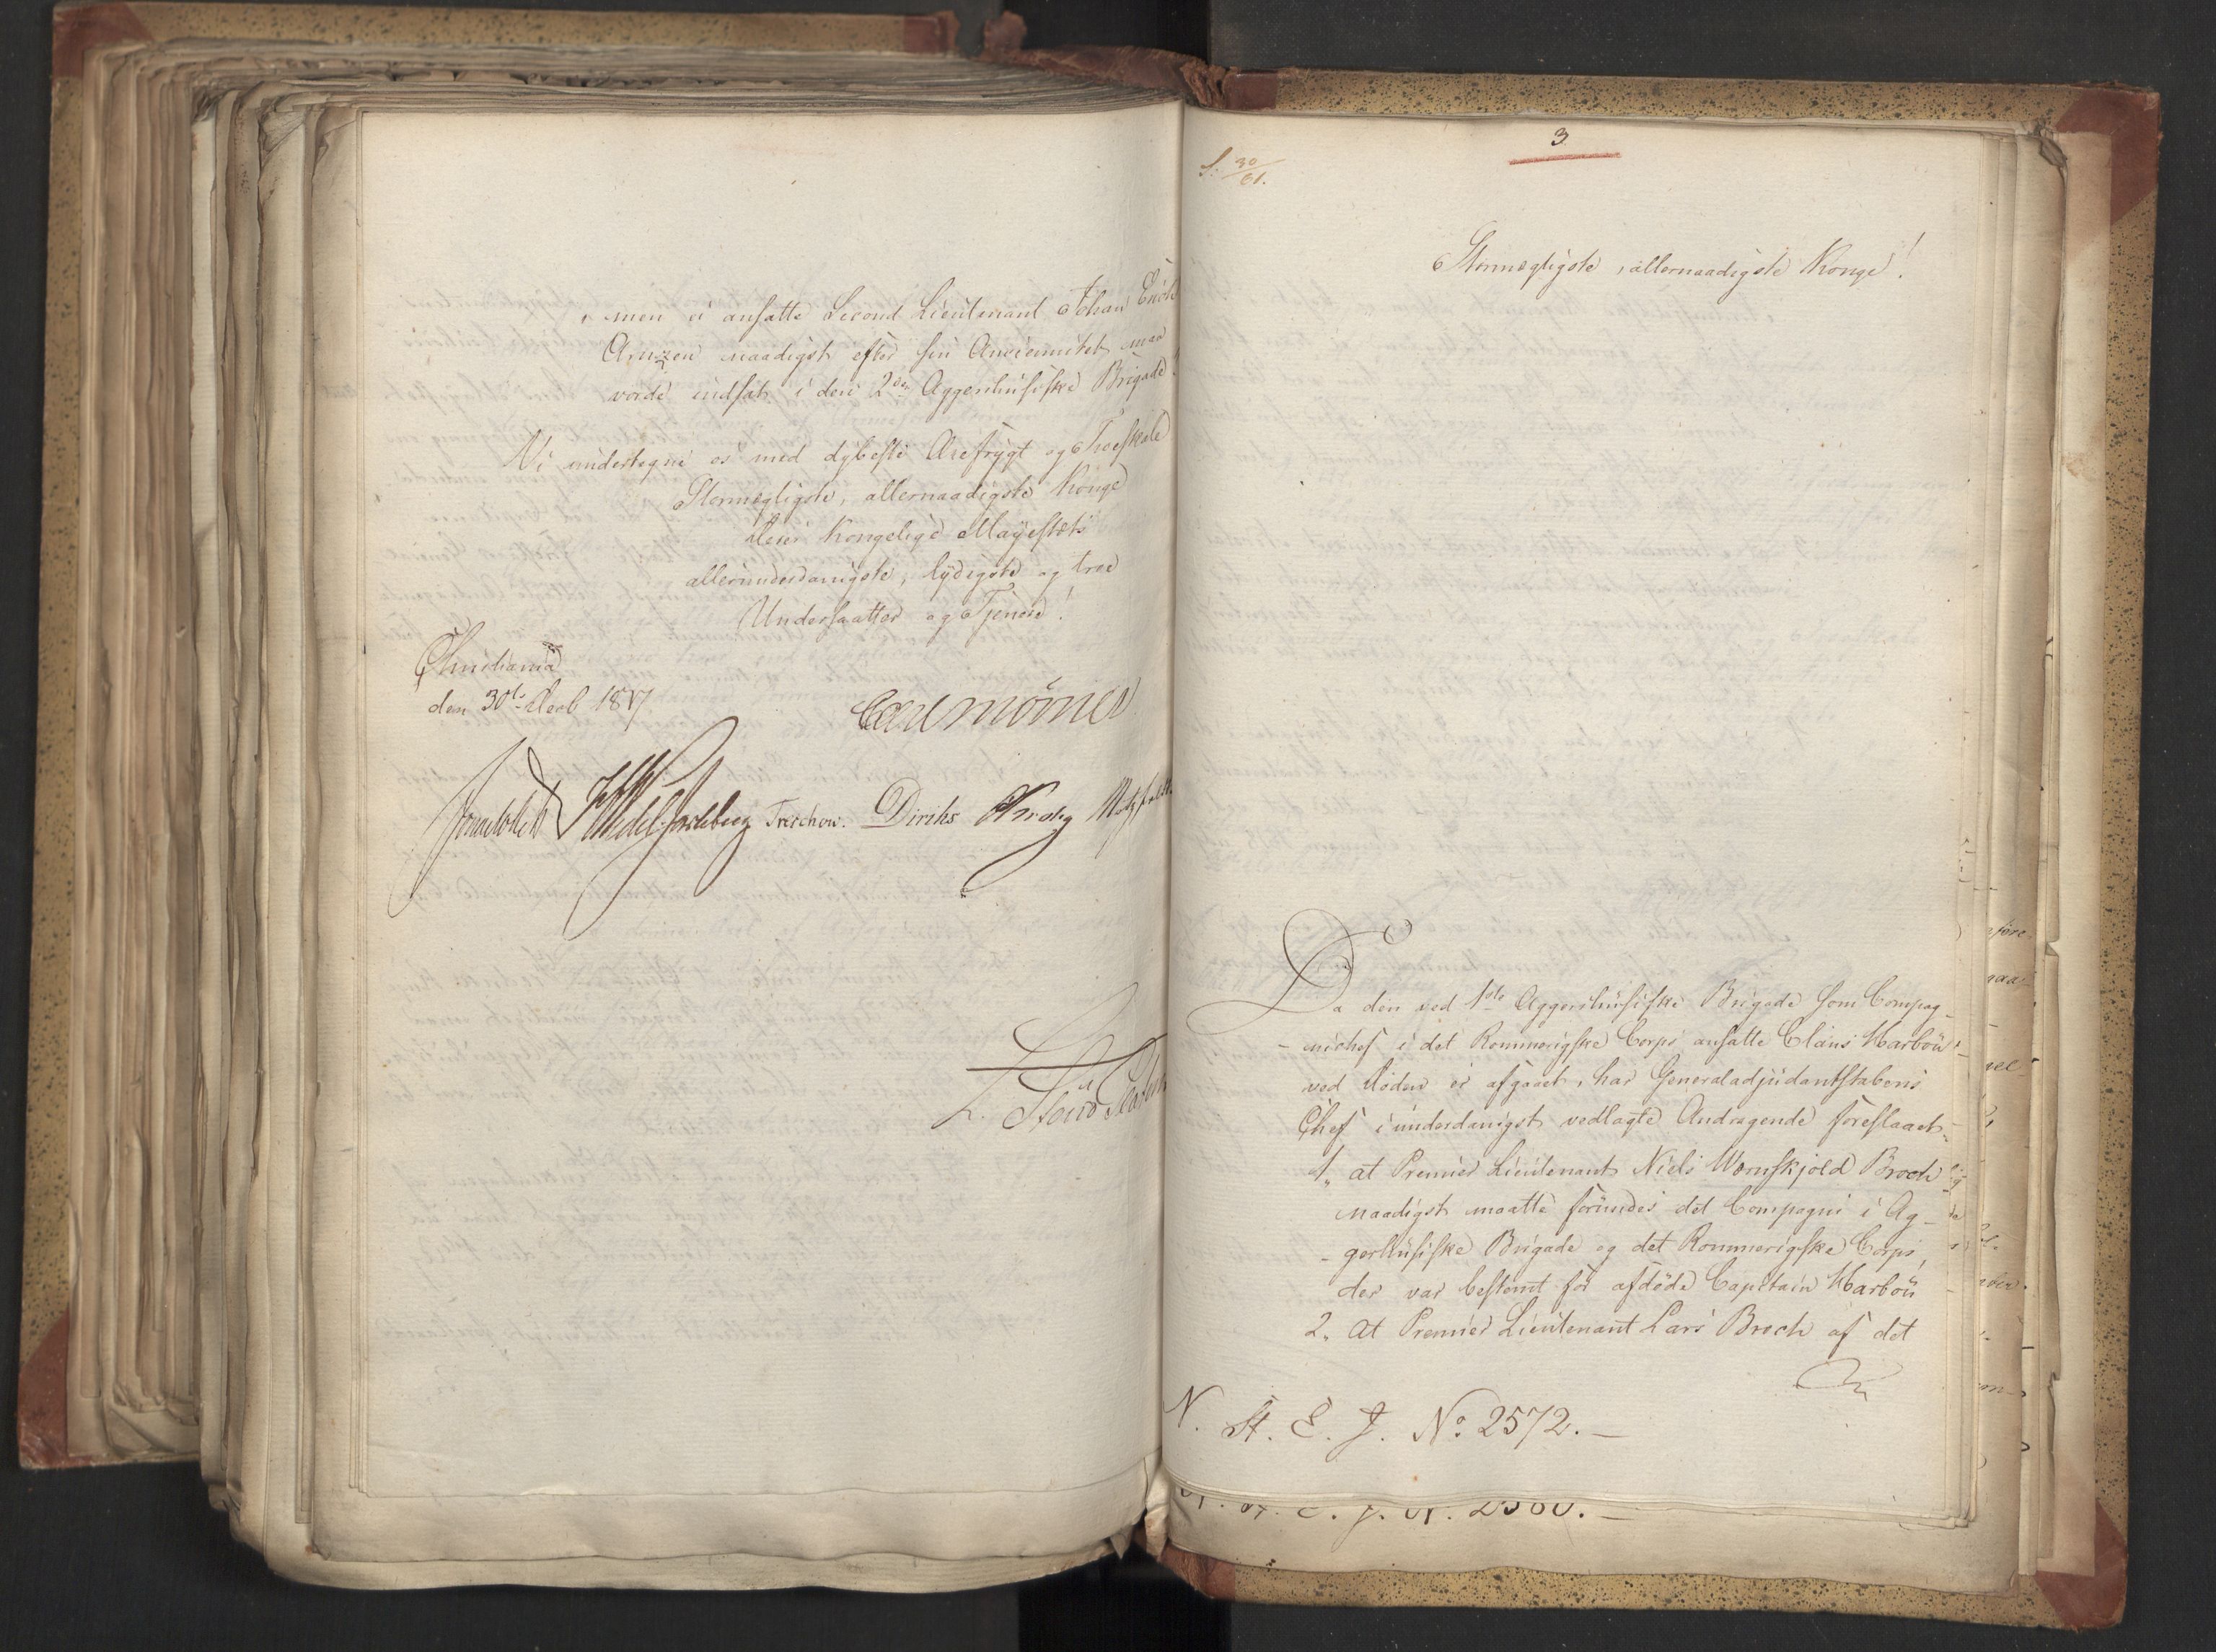 men ei ansatte Second Lieutenant Johan Erich
Aruzen naadigst efter sin Anciennitet maa
vorde indsat i den 2den Aggershusiske Brigade.
Vi undertegne os med dybeste Ærefrygt og Troeskab
Stormægtigste, allernaadigste Konge
Deres Kongelige Mayestæts
allerunderdanigste, lydigste og troe
Undersaatter og Tjenere!
Christiania
den 30te Decb 1817
Carl Mörner
Sommerhielm FHWedel Jarlsberg Treschow. Diriks Krohg Motzfeldt
3
S: 30/61.
Stormægtigste, allernaadigste Konge!
Da den ved 1ste Aggershusiske Brigade som Compag-
-nichef i det Rommerigske Corps ansatte Claus Harbou
ved Døden er afgaaet, har Generaladjudantstabens
Chef i underdanigst vedlagte Andragende foreslaaet:
1, at Premier Lieutenant Niels Wernskjold Broch
naadigst maatte forundes det Compagni i Ag-
-gershusiske Brigade og det Rommerigske Corps,
der var bestemt for afdöde Capitain Harbou
2, at Premier Lieutenant Lars Broch af det
N. St. E. J. No. 2572.
N. St. E. J. N. 2580.